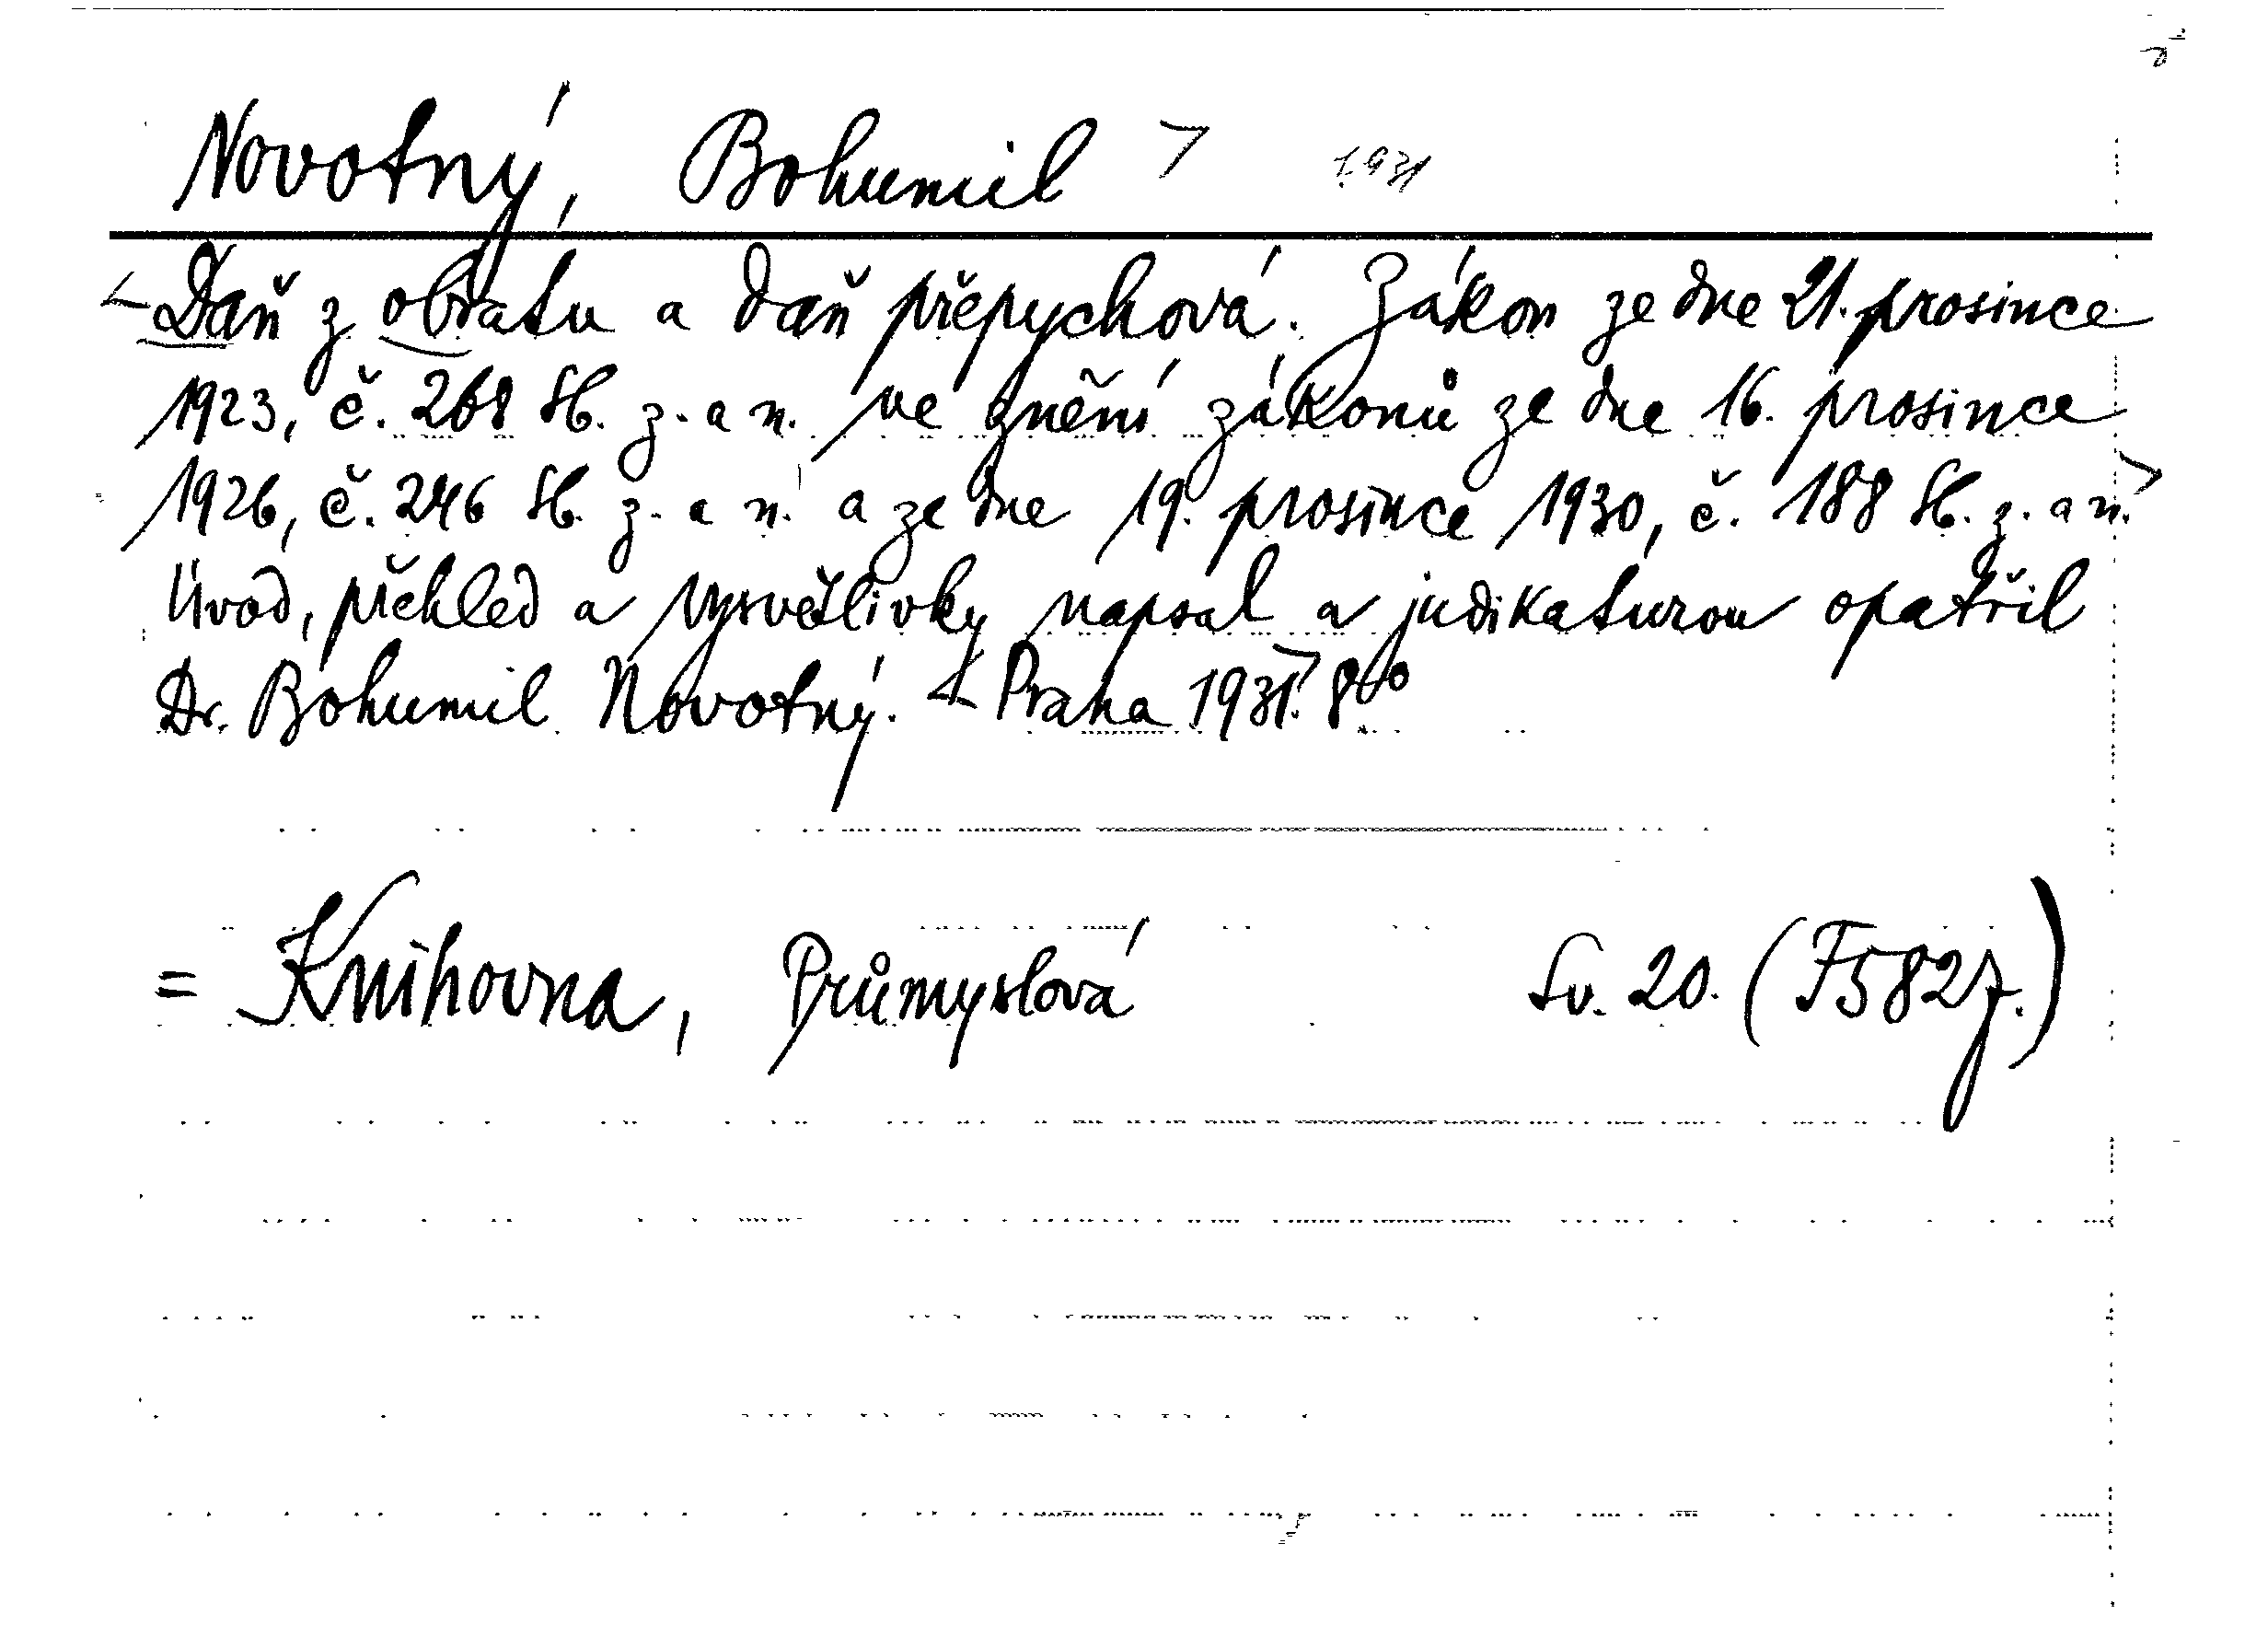 Novotný, Bohumil 1931
Daň z obratu a daň přepychová. Zákon ze dne 21. prosince
1923, č. 268 Sb. z. a n. ve znění zákonů ze dne 16. prosince
1926, č. 246 Sb. z. a n. a ze dne 19. prosince 1930, č. 188 Sb. z. a n.
Úvod, přehled a vysvětlivky napsal a judikaturou opatřil
Dr. Bohumil Novotný. Praha 1931. 8°
= Knihovna, Průmyslová Sv. 20. (F5827.)